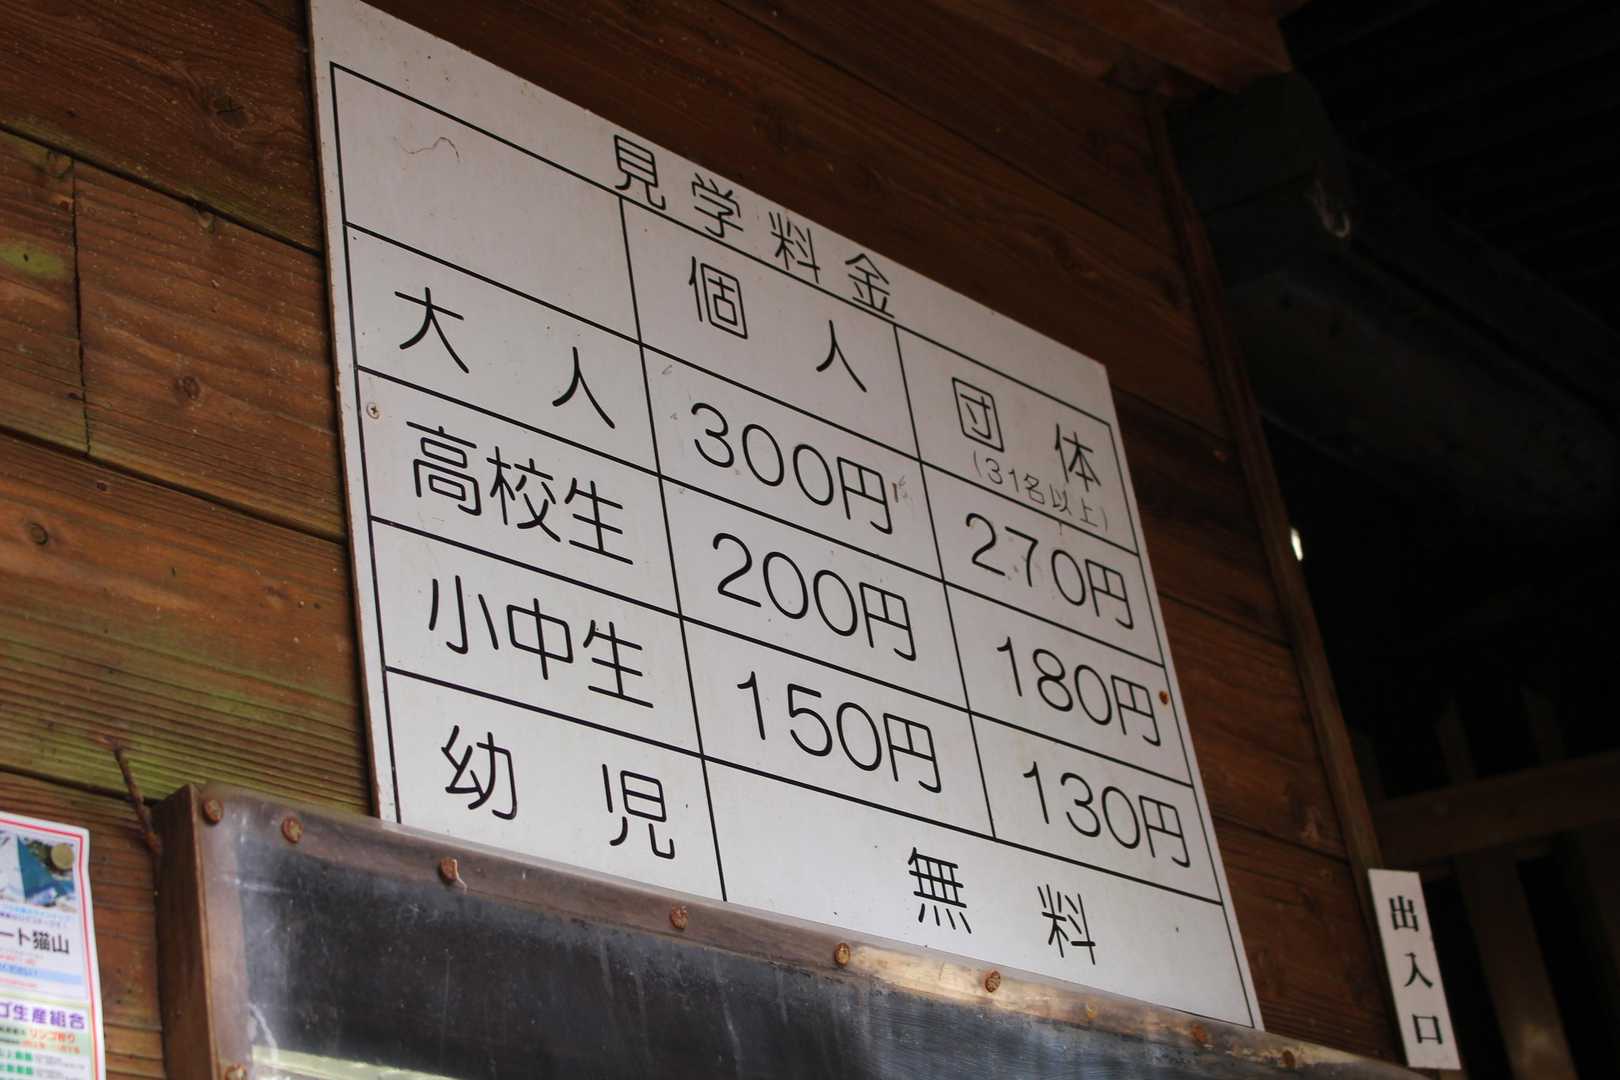 見学料金
個人 団体
(31名以上)
大人 300円 270円
高校生 200円 180円
小中生 150円 130円
幼児 無料
出入口
ート猫山
ゴ生産組合
リンゴ狩り